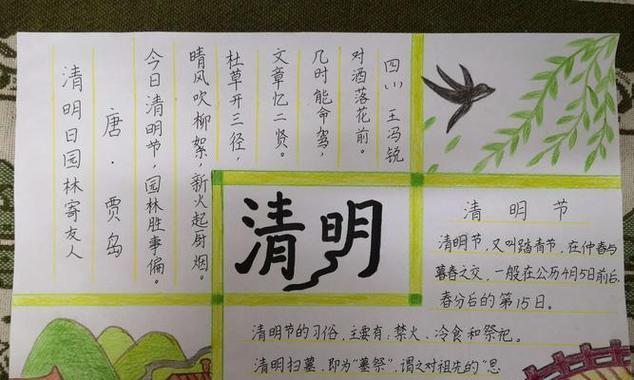 清明日园林寄友人
唐·贾岛
今日清明节，园林胜事偏。
晴风吹柳絮，新火起厨烟。
杜草开三径，
文章忆二贤。
几时能命驾，
对酒落花前。
四(1) 王冯锐
清明
清明节
清明节，又叫踏青节，在仲春与
暮春之交，一般在公历4月5日前后，
春分后的第15日。
清明节的习俗，主要有：禁火、冷食和祭祀。
清明扫墓，即为“墓祭”，谓之对祖先的“思